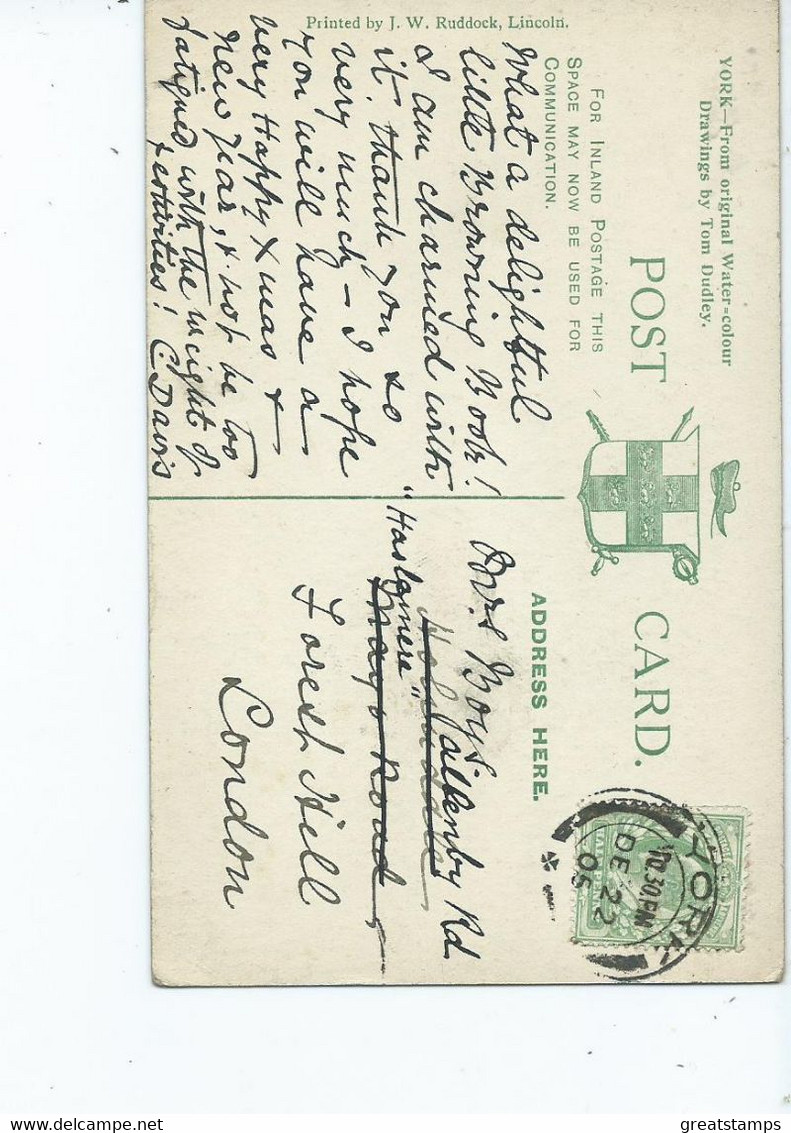 YORK—From original Water=colour
Drawings by Tom Dudley.
POST CARD.
FOR INLAND POSTAGE THIS
SPACE MAY NOW BE USED FOR
COMMUNICATION.
ADDRESS HERE.
What a delightful
little Browning Book!
I am charmed with
it. thank you so
very much – I hope
you will have a
very Happy Xmas &
New Year, & not be too
fatigued with the weight of
festivities! C. Davis
Mrs Boys
"Haslemere" Allenby Rd
Mayo Road
Forest Hill
London
YORK
10.30 PM
DE 22
05
Printed by J. W. Ruddock, Lincoln.
www.delcampe.net
greatstamps